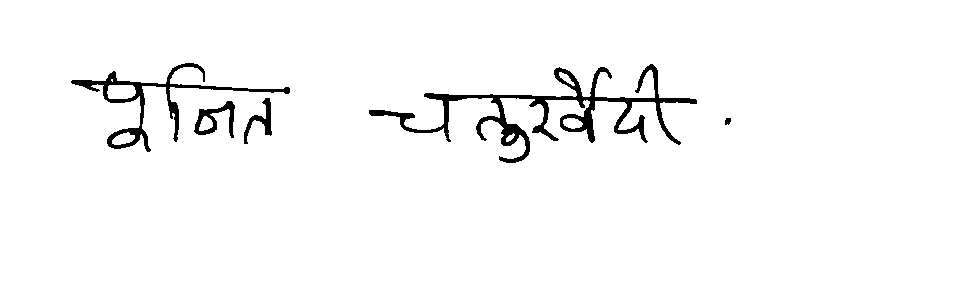 पूनित चतुरर्वेदी .